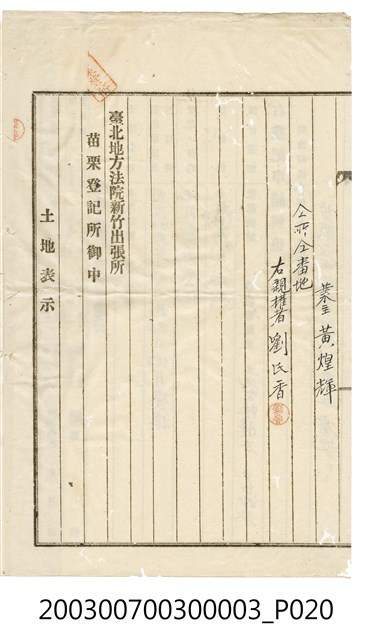 業主 黃煌輝
仝所仝番地
右親權者 劉氏香
臺北地方法院新竹出張所
苗栗登記所御中
土地表示
200300700300003_P020